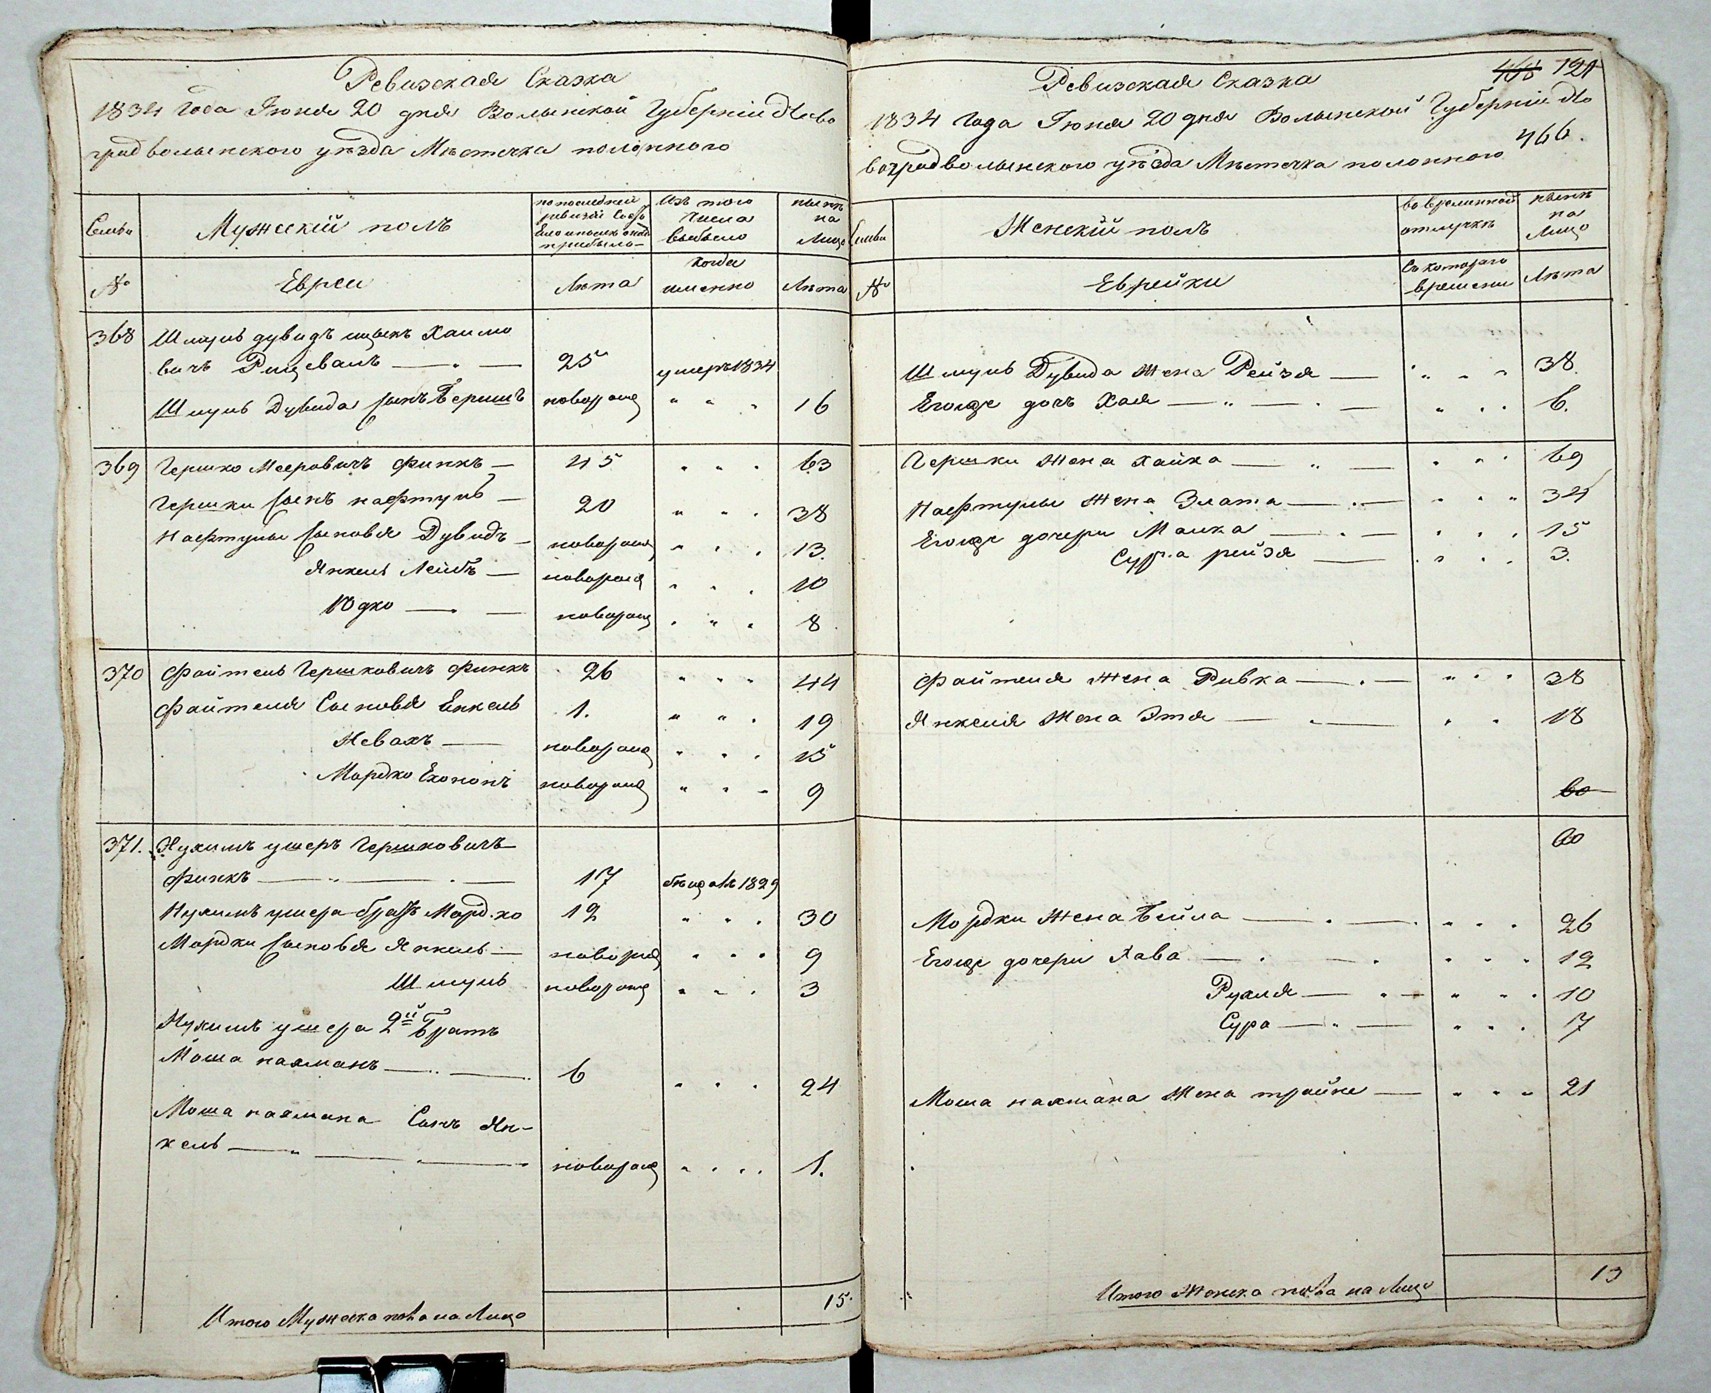 Ревизская Сказка
1834 года Июня 20 дня Волынской Губернiи Ново
градволынского уѣзда Мѣстечка полонного
Семьи
Мужескiй полъ
по последней
ревизiи состо
яло и после оной
прибыло
Изъ того
числа
выбыло
нынѣ
на
Лицо
№
Евреи
Лѣта
когда
именно
Лѣта
368 Шмуль дувидъ ицыкъ Хаимо
вичъ 25 умеръ 1834
Шмуль Дувида сынъ Бершъ новорожд 16
369 Гершко Мееровичъ Финкъ 45 63
Гершки сынъ нафтуль 20 38
Нафтулы сыновья Дувидъ новорожд 13
Янкель Лейбъ новорожд 10
Юдко новорожд 8
370 Файтель Гершковичъ Финкъ 26 44
Файтеля Сыновья Енкель 1. 19
Невахъ новорожд 15
Мордко новорожд 9
371. Нухимъ ушеръ Гершковичъ
Финкъ 17 1829
Нухимъ ушера братъ Мордко 12 30
Мордки сыновья Янкель новорожд 9
Шмуль новорожд 3
Нухимъ ушера 2й Братъ
Моша нахманъ 6 24
Моша нахмана Сынъ Ян-
кель новорожд 1.
Итого Мужеска пола на Лицо 15.
Ревизская Сказка
121
1834 Года Июня 20 дня Волынской Губернiи Но
воградволынского уѣзда Мѣстечка полонного 466.
Семьи
Женскiй полъ
во временной
отлучкѣ
нынѣ
на
Лицо
№
Еврейки
Съ котораго
времени
Лѣта
Шмуль Дувида Жена Рейзя 38.
Егожъ дочь Хая 6.
Гершки Жена Хайка 69
Нафтулы Жена Злата 34
Егожъ дочери Малка 15
Сура рейзя 3.
Файтеля Жена Ривка 38
Янкеля Жена Этя 18
60
60
Мордки Жена Бейла 26
Егожъ дочери Хава 12
Рухля 10
Сура 7
Моша нахмана Жена трайне 21
Итого Женска пола на Лицо 13